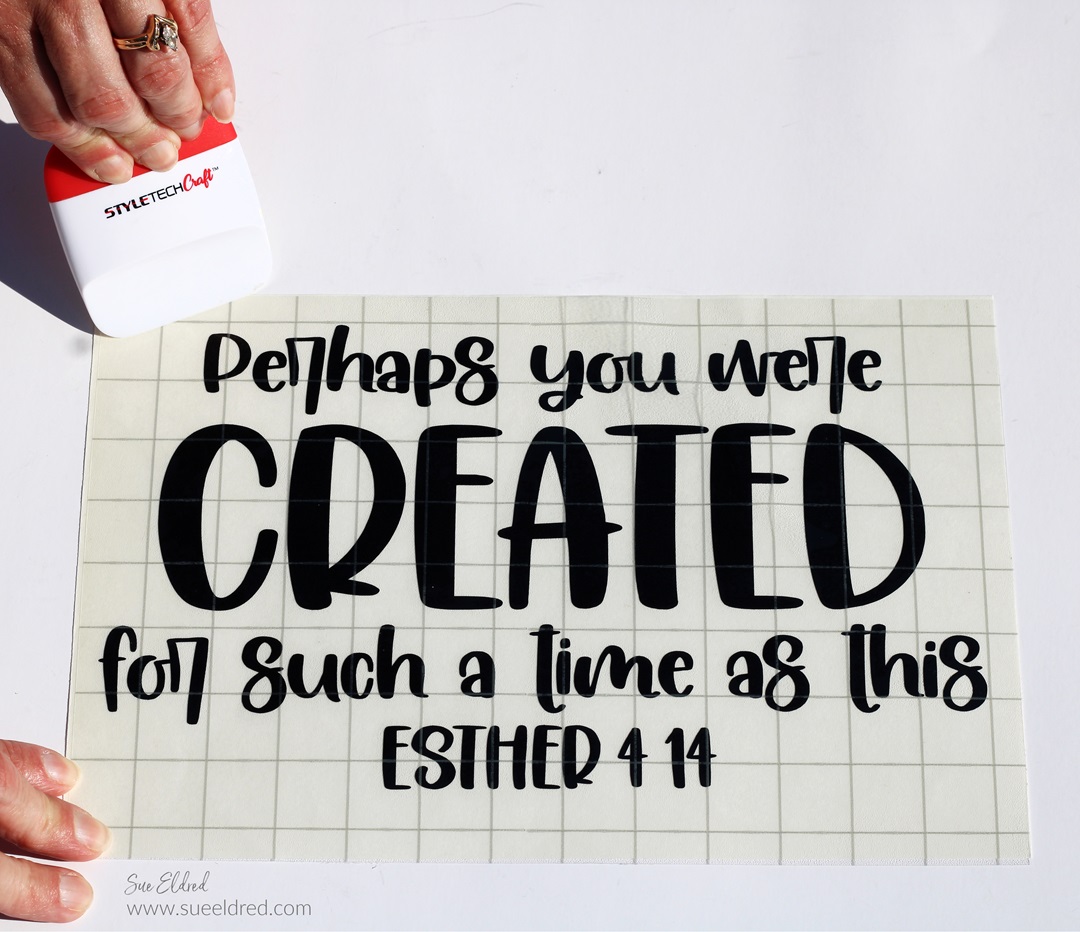 STYLETECHCraft™
Perhaps you were
CREATED
for such a time as this
ESTHER 4 14
Sue Eldred
www.sueeldred.com